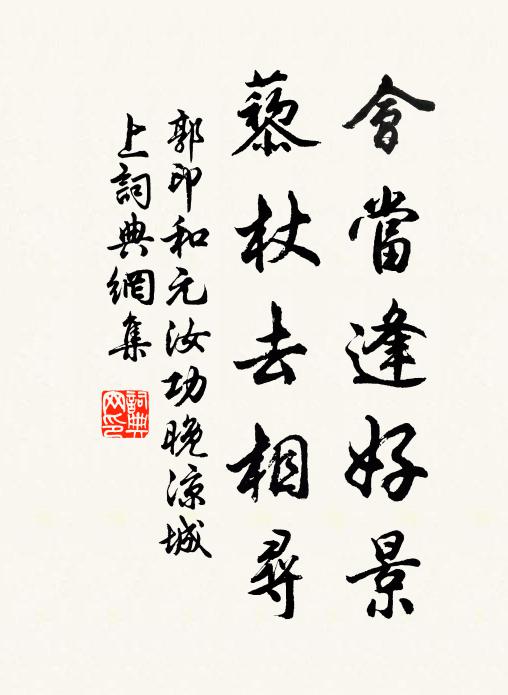 會當逢好景
藜杖去相尋
郭印和元汝功晚涼城
上詞典網集
詞典
网印